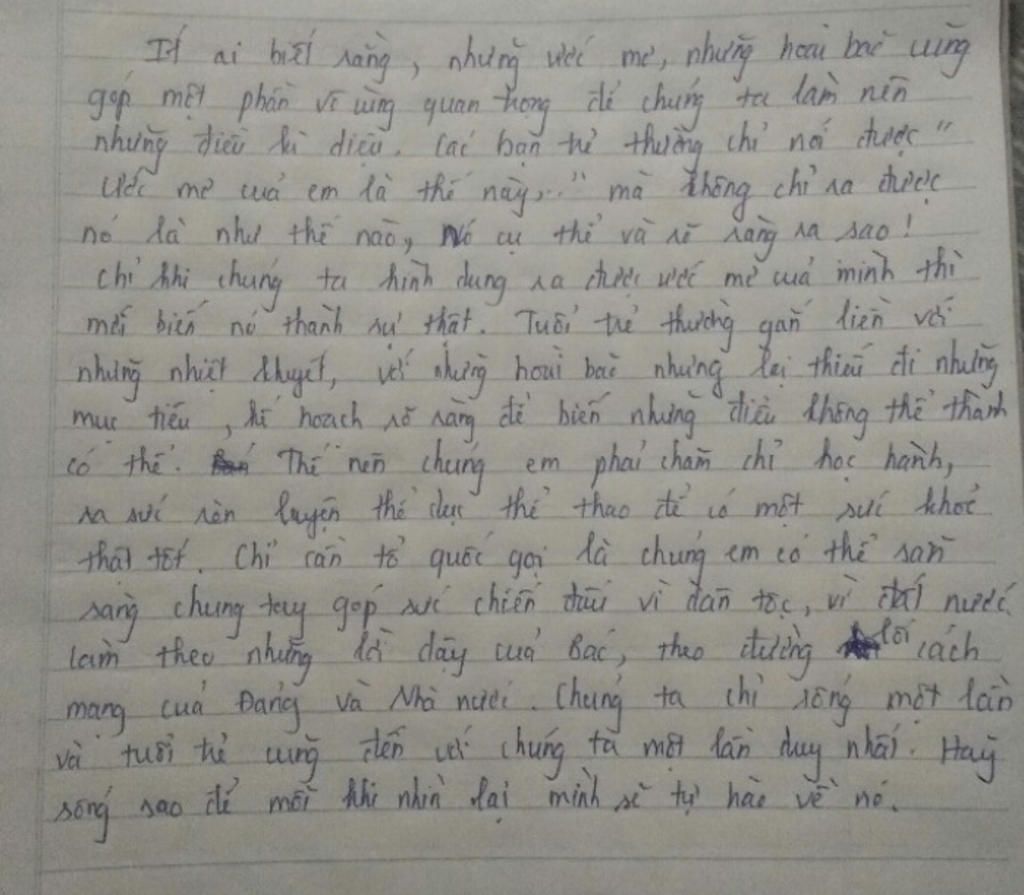 Ít ai biết rằng, những ước mơ, những hoài bão cũng
góp một phần vô cùng quan trọng để chúng ta làm nên
những điều kì diệu. Các bạn trẻ thường chỉ nói được "
Ước mơ của em là thế này,.." mà không chỉ ra được
nó là như thế nào, Nó cụ thể và rõ ràng ra sao!
Chỉ khi chúng ta hình dung ra được ước mơ của mình thì
mới biến nó thành sự thật. Tuổi trẻ thường gắn liền với
những nhiệt huyết, với những hoài bão nhưng lại thiếu đi những
mục tiêu, kế hoạch rõ ràng để biến những điều không thể thành
có thể. Thế nên chúng em phải chăm chỉ học hành,
ra sức rèn luyện thể dục thể thao để có một sức khoẻ
thật tốt. Chỉ cần tổ quốc gọi là chúng em có thể sẵn
sàng chung tay góp sức chiến đấu vì dân tộc, vì đất nước.
làm theo những lời dạy của Bác, theo đường lối cách
mạng của Đảng và Nhà nước. Chúng ta chỉ sống một lần
và tuổi trẻ cũng đến với chúng ta một lần duy nhất. Hãy
sống sao để mỗi khi nhìn lại mình sẽ tự hào về nó.